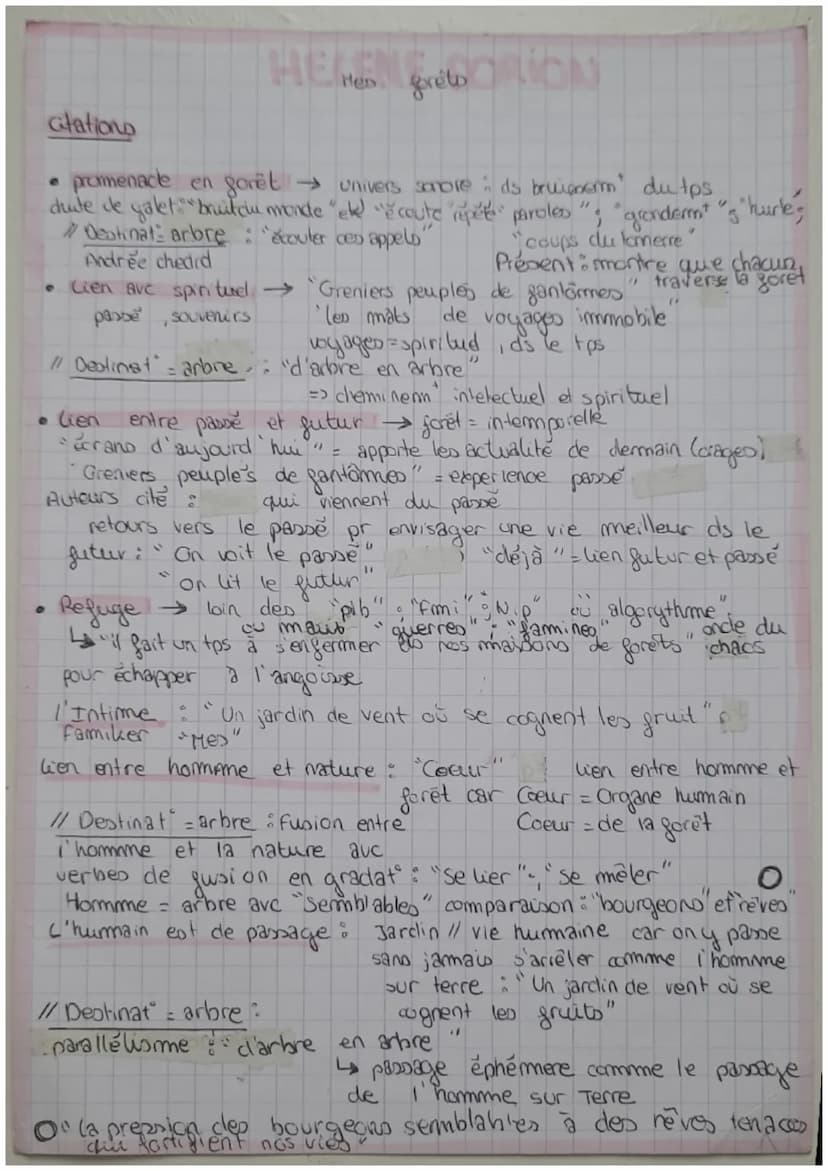 HELENE DORION
Mes forêts
Citations
• promenade en forêt → univers sonore : ds bruissem^t du tps
chute de galet : "bruit du monde" et "écoute répété paroles" ; "grondem^t" ; "hurle" ;
// Destinat° : arbre : "écouter ces appels" "coups du tonnerre"
Andrée chedid Présent : montre que chacun traverse la forêt
• Lien avc spirituel → "Greniers peuplés de fantômes"
passé, souvenirs "les mâts de voyages immobile"
voyages = spirituel, ds le tps
// Destinat° = arbre : "d'arbre en arbre"
=> cheminem^t intelectuel et spirituel
• Lien entre passé et futur → forêt = intemporelle
"écrans d'aujourd'hui" = apporte les actualité de demain (orages)
"Greniers peuplés de fantômes" = experience passé
Auteurs cité : qui viennent du passé
retours vers le passé pr envisager une vie meilleur ds le
futur : "On voit le passé" "déjà" = lien futur et passé
"on lit le futur"
• Refuge → loin des "pib" : "fmi" : N.i.p" où algorythme"
ou mauis "guerres" : "famines" onde du chaos
↳ "il fait un tps à s'enfermer ds nos maisons de forêts"
pour échapper à l'angoisse
l'Intime : "Un jardin de vent où se cognent les fruit"
Familier "Mes"
Lien entre homme et nature : "Coeur" lien entre homme et
forêt car Coeur = Organe humain
// Destinat° = arbre : Fusion entre Coeur = de la forêt
l'homme et la nature avc
verbes de fusion en gradat° : "se lier" ; "se mêler" O
Homme = arbre avc "semblables" comparaison : "bourgeons" et "rêves"
L'humain est de passage : Jardin // vie humaine car on y passe
sans jamais s'arrêler comme l'homme
sur terre : "Un jardin de vent où se
// Destinat° = arbre : cognent les fruits"
parallélisme : "d'arbre en arbre"
↳ passage éphémere comme le passage
de l'homme sur Terre
O "la pression des bourgeons semblables à des rêves tenaces
qui fortifient nos vies"